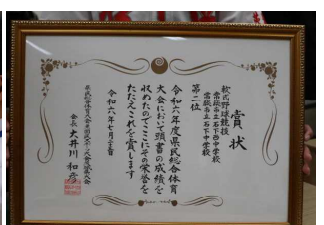 賞状
軟式野球競技
常総市立石下西中学校
常総市立石下中学校
第二位
令和六年度県民総合体育
大会において頭書の成績を
収めたのでここにその栄誉を
たたえこれを賞します
令和六年七月
会長 大井川 和彦